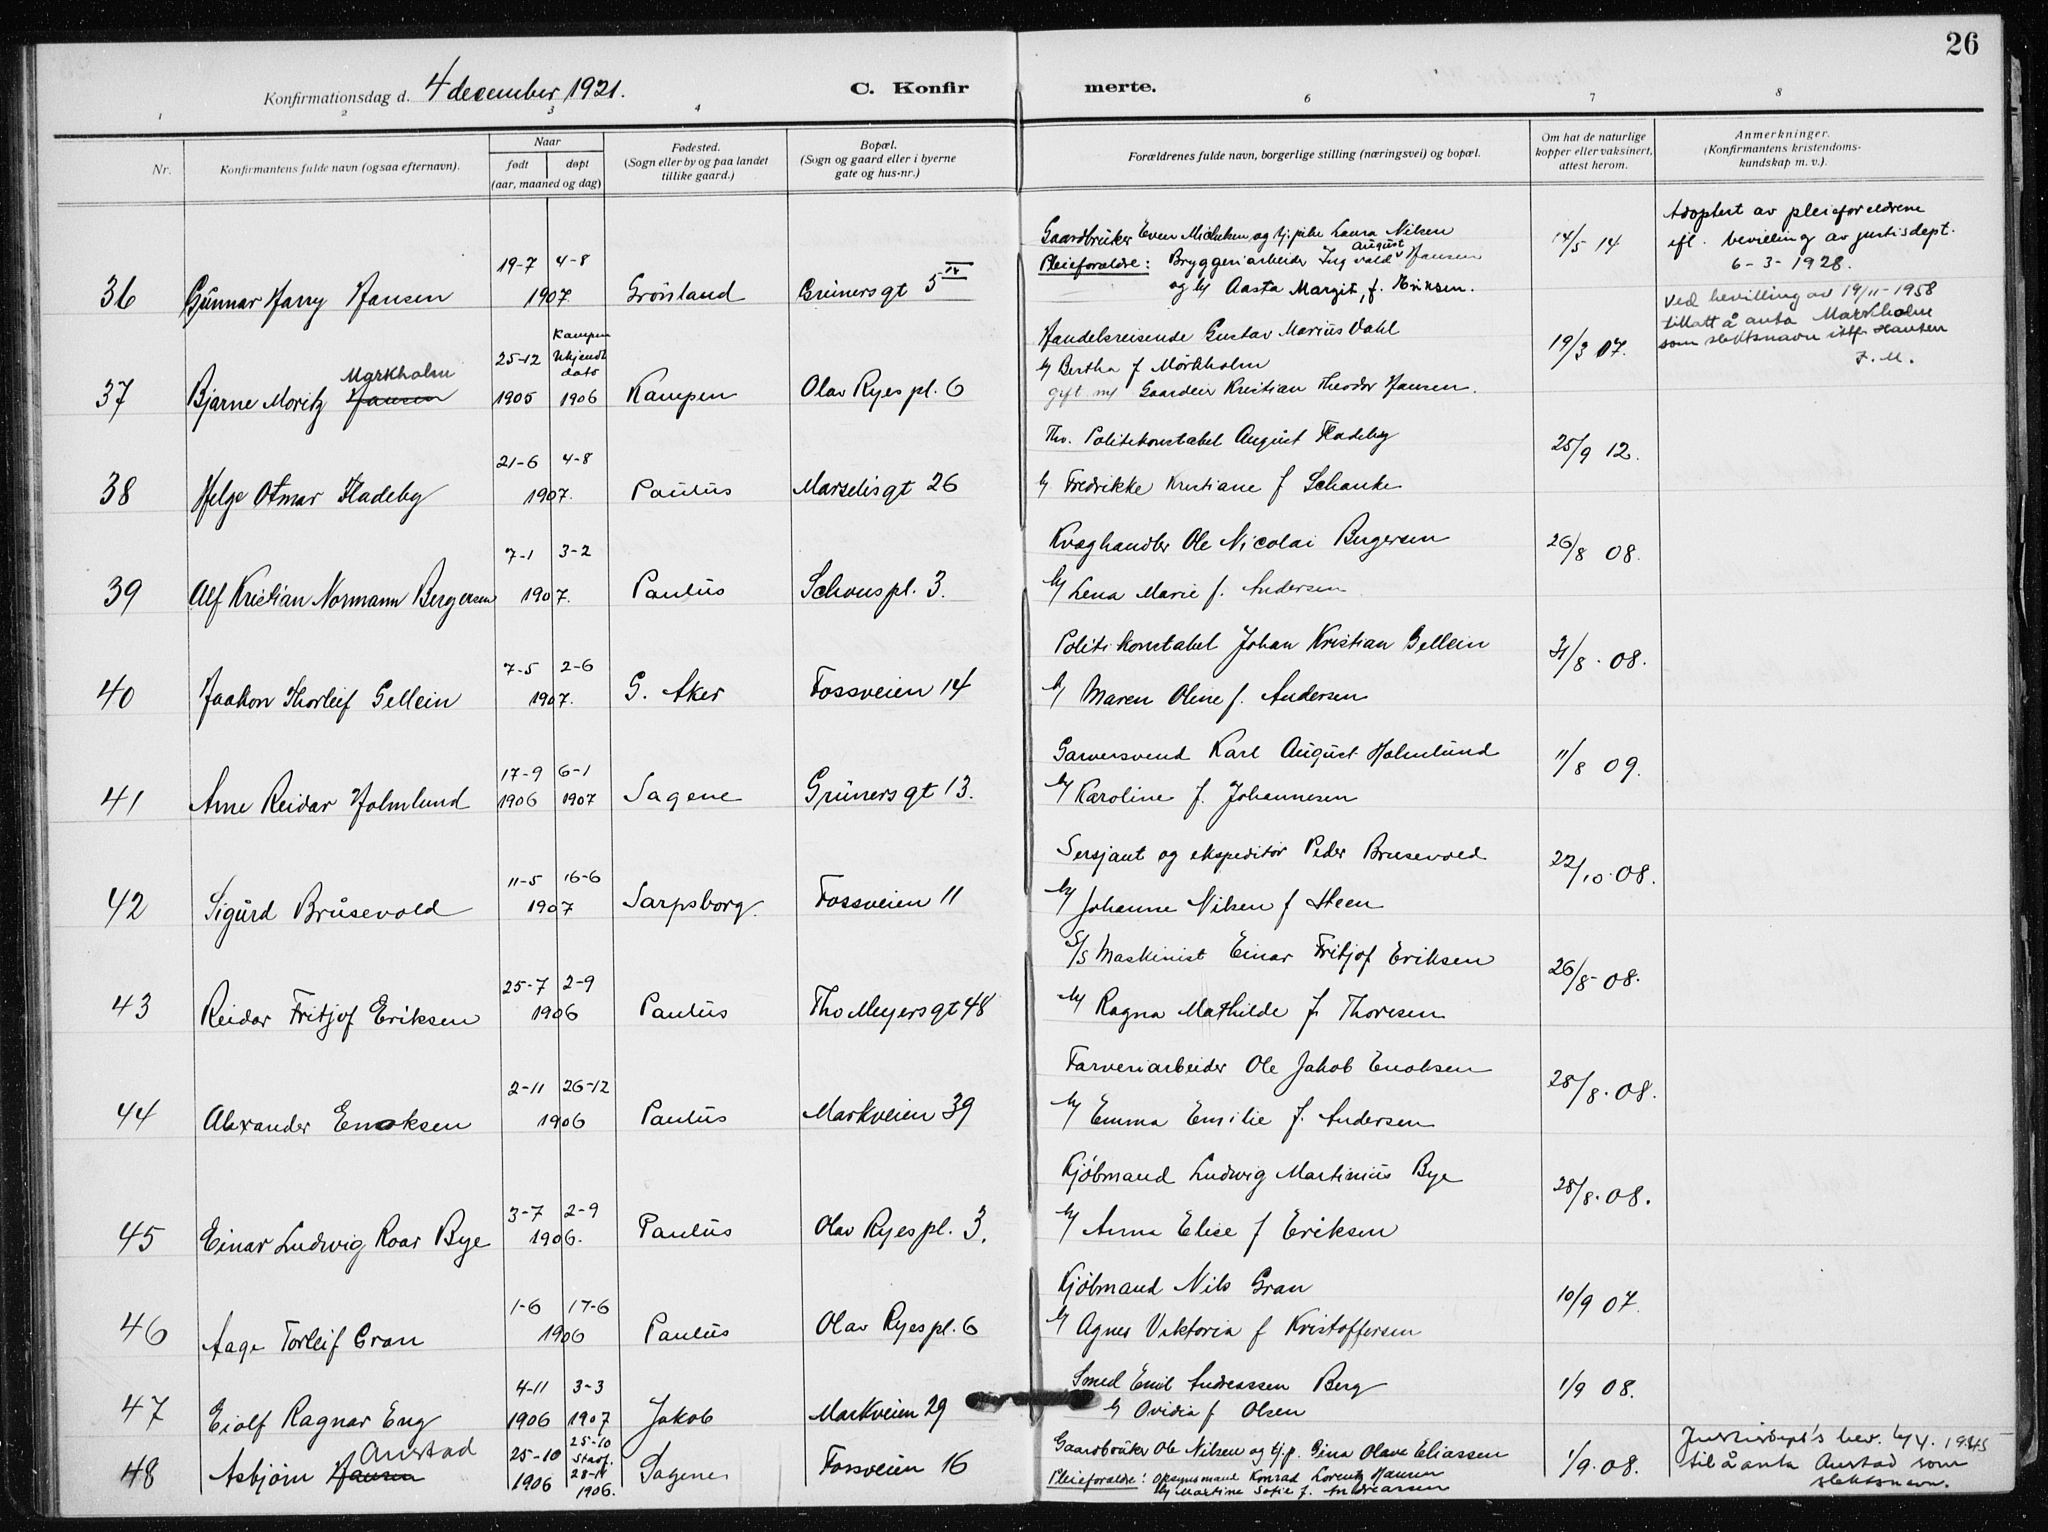 26
Konfirmationsdag d. 4 december 1921. C. Konfir merte.
1 2 3 4 6 7 8
Nr. Konfirmantens fulde navn (ogsaa efternavn). Naar født døpt (aar, maaned og dag) Fødested. (Sogn eller by og paa landet tillike gaard.) Bopæl. (Sogn og gaard eller i byerne gate og hus-nr.) Forældrenes fulde navn, borgerlige stilling (næringsvei) og bopæl. Om hat de naturlige kopper eller vaksinert, attest herom. Anmerkninger. (Konfirmantens kristendomskundskap m. v.).
Gaardbruker Even Mickelsen og tj. pike Laura Nilsen 14/5 14 Adoptert av pleieforeldrene
Pleieforældre: Bryggeriarbeider Ingvald August Hansen ifl. bevilling av justisdept.
19-7 4-8 og h/ Aasta Margit, f. Eriksen. 6-3-1928.
36 Gunnar Harry Hansen 1907. Grønland Grünersgt 5 IV
ved bevilling av 19/11-1958
Kampen Handelsreisende Gustav Marius Dahl 19/3 07. tillatt å anta Mørkholm
25-12 Ukjendt dato h/ Bertha f Mörkholm som slektsnavn istf. Hansen
37 Bjarne Moritz Hansen Mørkholm 1905 1906 Kampen Olav Ryes pl. 6 gift m/ Gaardeier Kristian Theodor Hansen.
21-6 4-8 Fhv. Politikonstabel August Fladeby 25/9 12.
38 Helge Otmar Fladeby 1907. Paulus Marselisgt 26 h/ Fredrikke Kristiane f Schanke
7-1 3-2 Kvæghandler Ole Nicolai Bergersen 26/8 08.
39 Alf Kristian Normann Bergersen 1907. Paulus Schouspl. 3. h/ Lena Marie f. Andersen
7-5 2-6 Politikonstabel Johan Kristian Gellein 31/8. 08.
40 Haakon Thorleif Gellein 1907. G. Aker Fossveien 14 h/ Maren Oline f. Andersen
17-9 6-1 Garversvend Karl August Holmlund 11/8 09.
41 Arne Reidar Holmlund 1906 1907 Sagene Grünersgt 13. h/ Karoline f. Johannesen
11-5 16-6 Sersjant og ekspeditør Peder Brusevold 22/10. 08.
42 Sigurd Brusevold 1907 Sarpsborg. Fossveien 11 h/ Johanne Nilsen f Steen
25-7 2-9 S/S Maskinist Einar Fritjof Eriksen 26/8-08.
43 Reidar Fritjof Eriksen 1906 Paulus Tho Meyersgt 48 h/ Ragna Mathilde f. Thoresen
2-11 26-12 Farveriarbeider Ole Jakob Enoksen 28/8. 08.
44 Alexander Enoksen 1906 Paulus Markveien 39 h/ Emma Emilie f. Andersen
3-7 2-9 Kjøbmand Ludwig Martinius Bye 28/8. 08.
45 Einar Ludwig Roar Bye 1906. Paulus Olav Ryes pl. 3. h/ Anna Elise f Eriksen
1-6 17-6 Kjøbmand Nils Gran 10/9 07.
46 Aage Torleif Gran 1906 Paulus Olav Ryes pl. 6 h/ Agnes Viktoria f Kristoffersen
4-11 3-3 Smed Emil Andreassen Berg 1/9 08.
47 Eiolf Ragnar Eng 1906 1907 Jakob Markveien 29 h/ Ovidia f Olsen
Anstad 25-10 25-10 Gaardbruker Ole Nilsen og tj.p. Gina Olava Eliassen 1/9. 08. Justisdept's bev. 4/4. 1945
48 Asbjørn Hansen 1906 28-11 1906. Sagene Fossveien 16 Pleieforældre: opsynsmand Konrad Lorentz Hansen til å anta Anstad som
h/ Martine Sofie f. Andreassen slektsnavn.